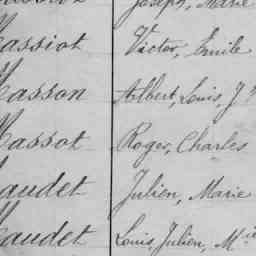 Joseph, Marie
assiot Victor, Emile
asson Albert, Louis, J
assot Roger, Charles
audet Julien, Marie
audet Louis, Julien, M